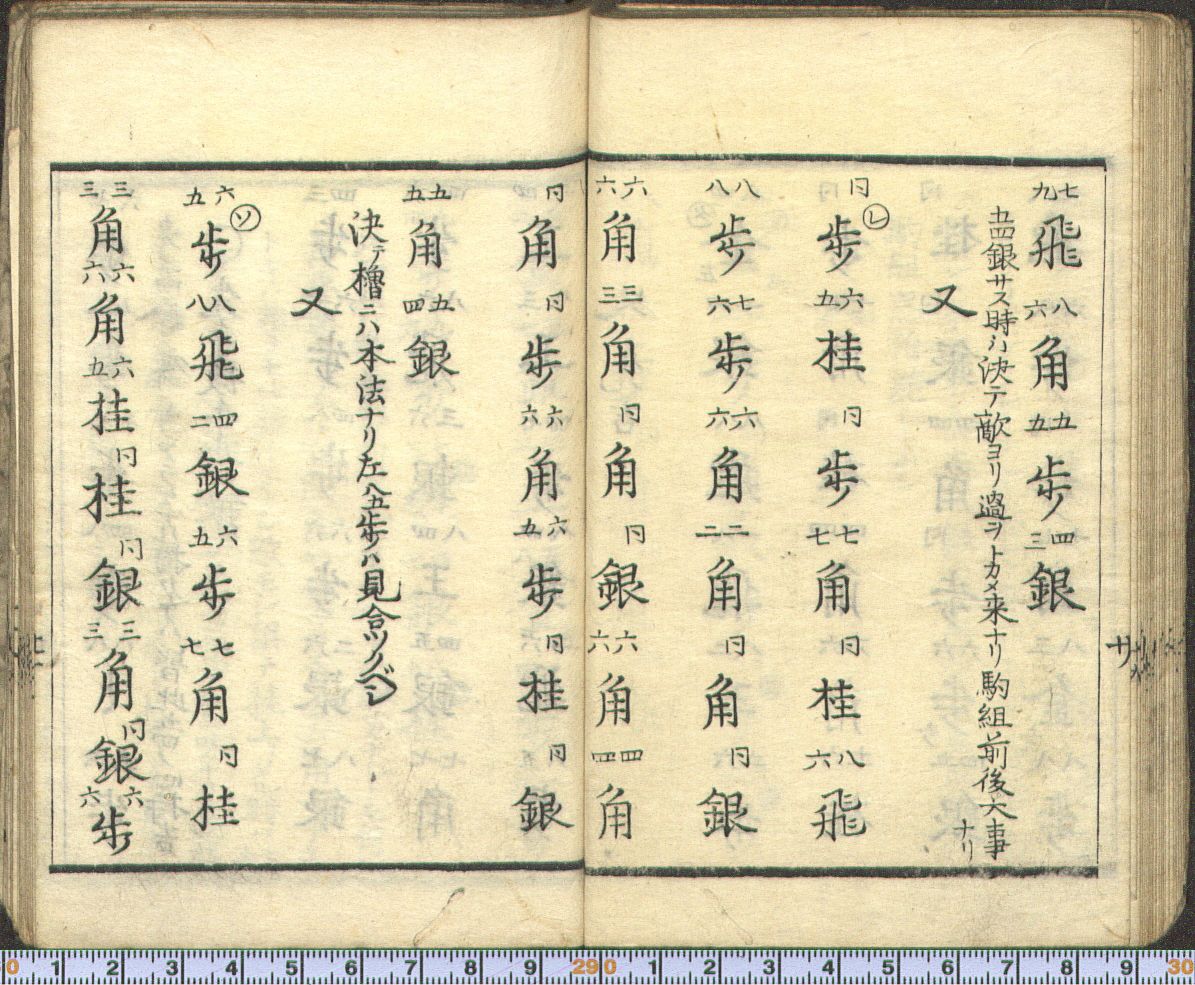 七九飛 八六角 五五歩 四三銀
五四銀サス時ハ決テ敵ヨリ過ヲトカメ来ナリ駒組前後大事ナリ
又
同歩㋹ 六五桂 同歩 七七角 同桂 八六飛
八八歩 七六歩 六六角 二二角 同角 同銀
六六角 三三角 同角 同銀 六六角 四四角
同角 同歩 六六角 六五歩 同桂 同銀
五五角 五四銀
決テ櫓ニハ本法ナリ左八五歩ハ見合ツクベシ
又
六五歩㋞ 八八飛 四二銀 六五歩 七七角 同桂
三三角 六六角 六五桂 同桂 同銀 三三角 同銀 六六歩
0 1 2 3 4 5 6 7 8 9 290 1 2 3 4 5 6 7 8 9 30